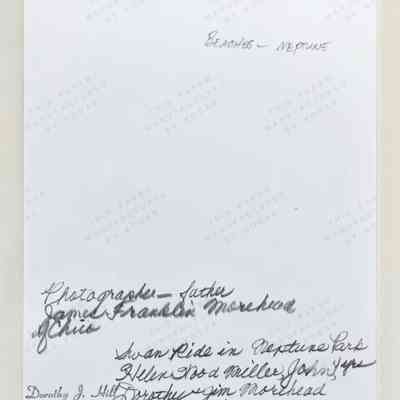 BEACHES - NEPTUNE
Photographer - father
James Franklin Morehead
of Chico
Swan Ride in Neptune Park
Helen Hood Miller, John,
Dorothy & Jim Morehead
Dorothy J. Hill
THIS PAPER
MANUFACTURED
BY KODAK